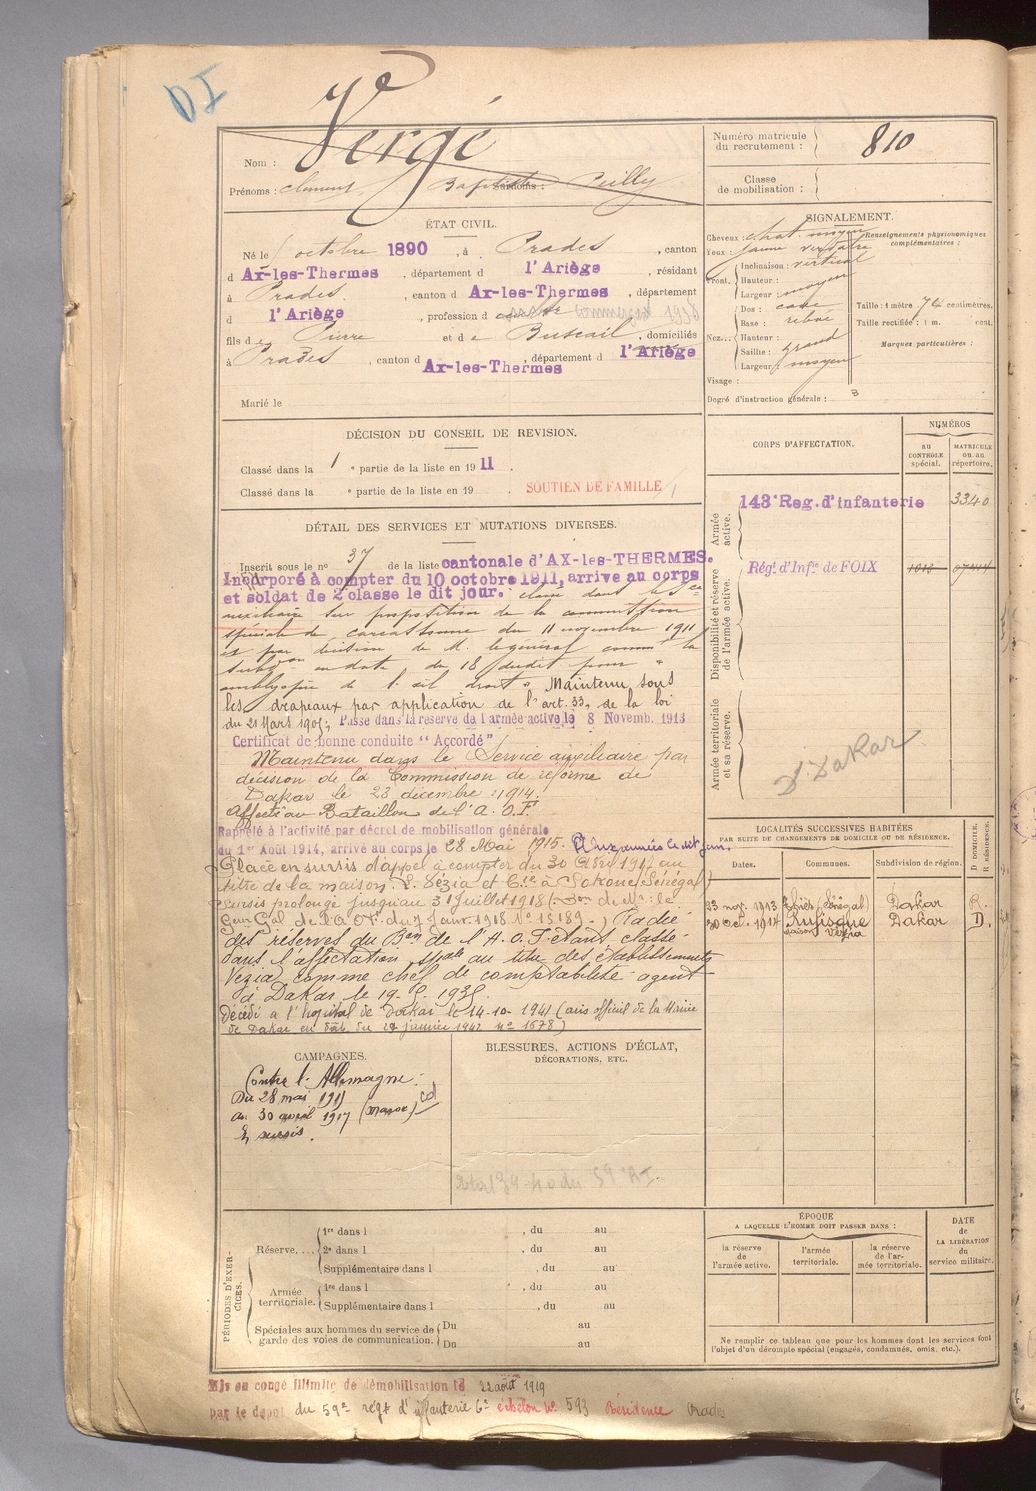 Vergé
Nom :
Prénoms : Clément Baptiste Surnoms :
Numéro matricule
du recrutement :
810
Classe
de mobilisation :
ÉTAT CIVIL.
Né le octobre 1890, à Prades, canton
d Ax-les-Thermes, département d l'Ariège, résidant
à Prades, canton d Ax-les-Thermes, département
d l'Ariège, profession d
fils de Pierre et de Buscail, domiciliés
à Prades, canton d Ax-les-Thermes, département d l'Ariège
Marié le
SIGNALEMENT.
Cheveux : chat. moyen
Yeux : jaune verdâtre
Renseignements physionomiques
complémentaires :
Front.
Inclinaison : vertical
Hauteur :
Largeur : moyen
Nez.
Dos : cave
Base : relevé
Hauteur :
Saillie : grand
Largeur : moyen
Taille : 1 mètre 74 centimètres.
Taille rectifiée : 1 m. cent.
Marques particulières :
Visage :
Degré d'instruction générale : 3
DÉCISION DU CONSEIL DE REVISION.
Classé dans la 1 e partie de la liste en 1911.
Classé dans la e partie de la liste en 19 . SOUTIEN DE FAMILLE
DÉTAIL DES SERVICES ET MUTATIONS DIVERSES.
Inscrit sous le n° 37 de la liste cantonale d'AX-les-THERMES.
Incorporé à compter du 10 octobre 1911, arrive au corps
et soldat de 2 classe le dit jour. classé dans le Sce
auxiliaire sur proposition de la commission
spéciale de Carcassonne du 11 novembre 1911
et par décision de M. le général comm la
Subdon en date du 18 dudit pour "
amblyopie de l'œil droit" Maintenu sous
les drapeaux par application de l'art. 33, de la loi
du 21 Mars 1905; Passé dans la réserve de l'armée active le 8 Novemb. 1913
Certificat de bonne conduite "Accordé"
Maintenu dans le Service auxiliaire par
décision de la Commission de réforme de
Dakar le 23 décembre 1914.
Affecté au Bataillon de l'A. O. F.
Rappelé à l'activité par décret de mobilisation générale
du 1er Août 1914, arrivé au corps le 28 Mai 1915.
Placé en sursis d'appel à compter du 30 1917 au
titre de la maison L. Vézia et Cie à Sokone (Sénégal)
sursis prolongé jusqu'au 31 juillet 1918
Gal de l'A O F. du 7 Janv. 1918 N° 15189.) Radié
des réserves du Bon de l'A. O. F. étant classé
dans l'affectation spale au titre des établissements
Vézia comme chef de comptabilité agent
à Dakar le
Décédé à l'hôpital de Dakar le 14-10-1941 (avis officiel de la Mairie
de Dakar en date du janvier 1942 n° 1678)
CORPS D'AFFECTATION.
NUMÉROS
au
CONTRÔLE
spécial.
MATRICULE
ou au
répertoire.
Armée
active.
143e Reg. d'infanterie
3340
Disponibilité et réserve
de l'armée active.
Régt. d'Infie de FOIX
Armée territoriale
et sa réserve.
Dakar
LOCALITÉS SUCCESSIVES HABITÉES
PAR SUITE DE CHANGEMENTS DE DOMICILE OU DE RÉSIDENCE.
Dates.
Communes.
Subdivision de région.
D DOMICILE.
R RÉSIDENCE.
23 nov. 1913 Thiès (Sénégal) Dakar R.
30 oct. 1917 Rufisque Dakar D.
maison Vézia
CAMPAGNES.
Contre l'Allemagne :
Du 28 mai 1915
au 30 avril 1917 (Maroc)
En sursis.
BLESSURES, ACTIONS D'ÉCLAT,
DÉCORATIONS, ETC.
PÉRIODES D'EXERCICES.
Réserve....
1re dans l , du au
2e dans l , du au
Supplémentaire dans l , du au
Armée
territoriale.
1re dans l , du au
Supplémentaire dans l , du au
Spéciales aux hommes du service de
garde des voies de communication.
Du au
Du au
ÉPOQUE
A LAQUELLE L'HOMME DOIT PASSER DANS :
la réserve
de
l'armée active.
l'armée
territoriale.
la réserve
de l'ar-
mée territoriale.
DATE
de
LA LIBÉRATION
du
service militaire.
Ne remplir ce tableau que pour les hommes dont les services font
l'objet d'un décompte spécial (engagés, condamnés, omis, etc.).
Mis en congé illimité de démobilisation le 22 août 1919
Par le dépôt du 59e régt d'infanterie 6e échelon n° 593 Résidence Prades